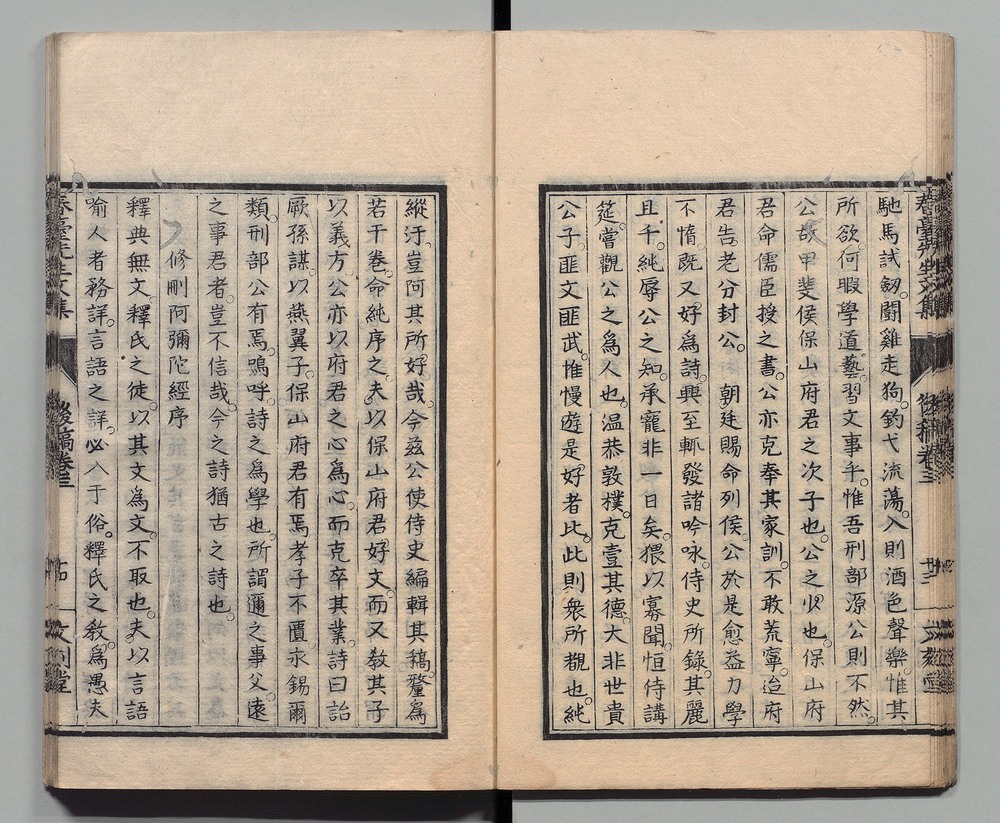 馳馬試劔。鬪雞走狗。釣弋流蕩。入則酒色聲樂。惟其
所欲。何暇學道藝。習文事乎。惟吾刑部源公則不然。
公故甲斐侯保山府君之次子也。公之少也。保山府
君命儒臣授之書。公亦克奉其家訓。不敢荒寧。迨府
君告老分封公。朝廷賜命列侯。公於是愈益力學
不惰。既又好為詩。興至輒發諸吟咏。侍史所錄。其麗
且千。純辱公之知。承寵非一日矣。猥以寡聞。恒侍講
筵。嘗觀公之為人也。温恭敦樸。克壹其德。大非世貴
公子。匪文匪武。惟慢遊是好者比。此則衆所覩也。純
縱汙。豈阿其所好哉。今茲公使侍史編輯其稿。釐為
若干卷。命純序之。夫以保山府君好文。而又教其子
以義方。公亦以府君之心為心。而克卒其業。詩曰詒
厥孫謀。以燕翼子。保山府君有焉。孝子不匱。永錫爾
類。刑部公有焉。嗚呼。詩之為學也。所謂邇之事父。遠
之事君者。豈不信哉。今之詩猶古之詩也。
修刪阿彌陀經序
釋典無文。釋氏之徒。以其文為文。不取也。夫以言語
喻人者務詳。言語之詳。必入于俗。釋氏之教。為愚夫
春臺先生文集
後稿卷三